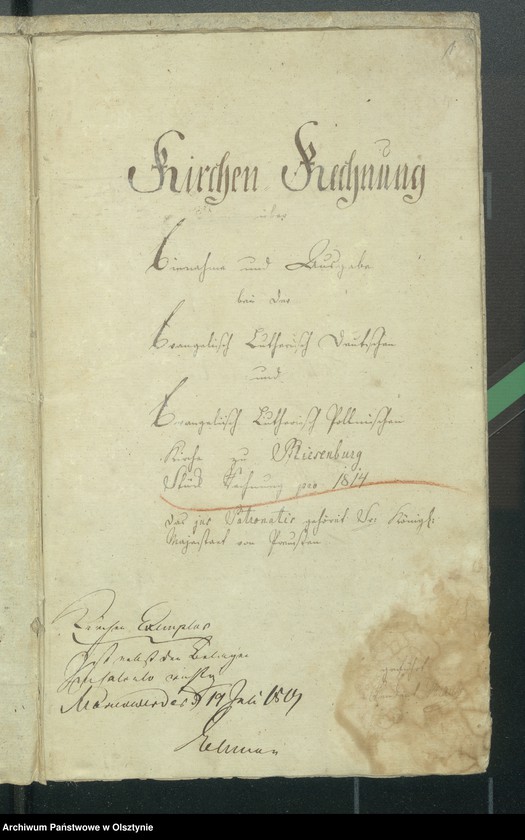 Kirchen Rechnung
über
Einnahme und Ausgabe
bei der
Evangelisch Lutherisch Deutschen
und
Evangelisch Lutherisch Pollnischen
Kirche zu Riesenburg
Rechnung pro 1814
Das jus Patronatis gehört Sr: Königl:
Majestaet von Preußen
Kirchen Exemplar
ist nebst den Belägen
in Calculo richtig
Marienwerder d 19 Juli
Archiwum Państwowe w Olsztynie